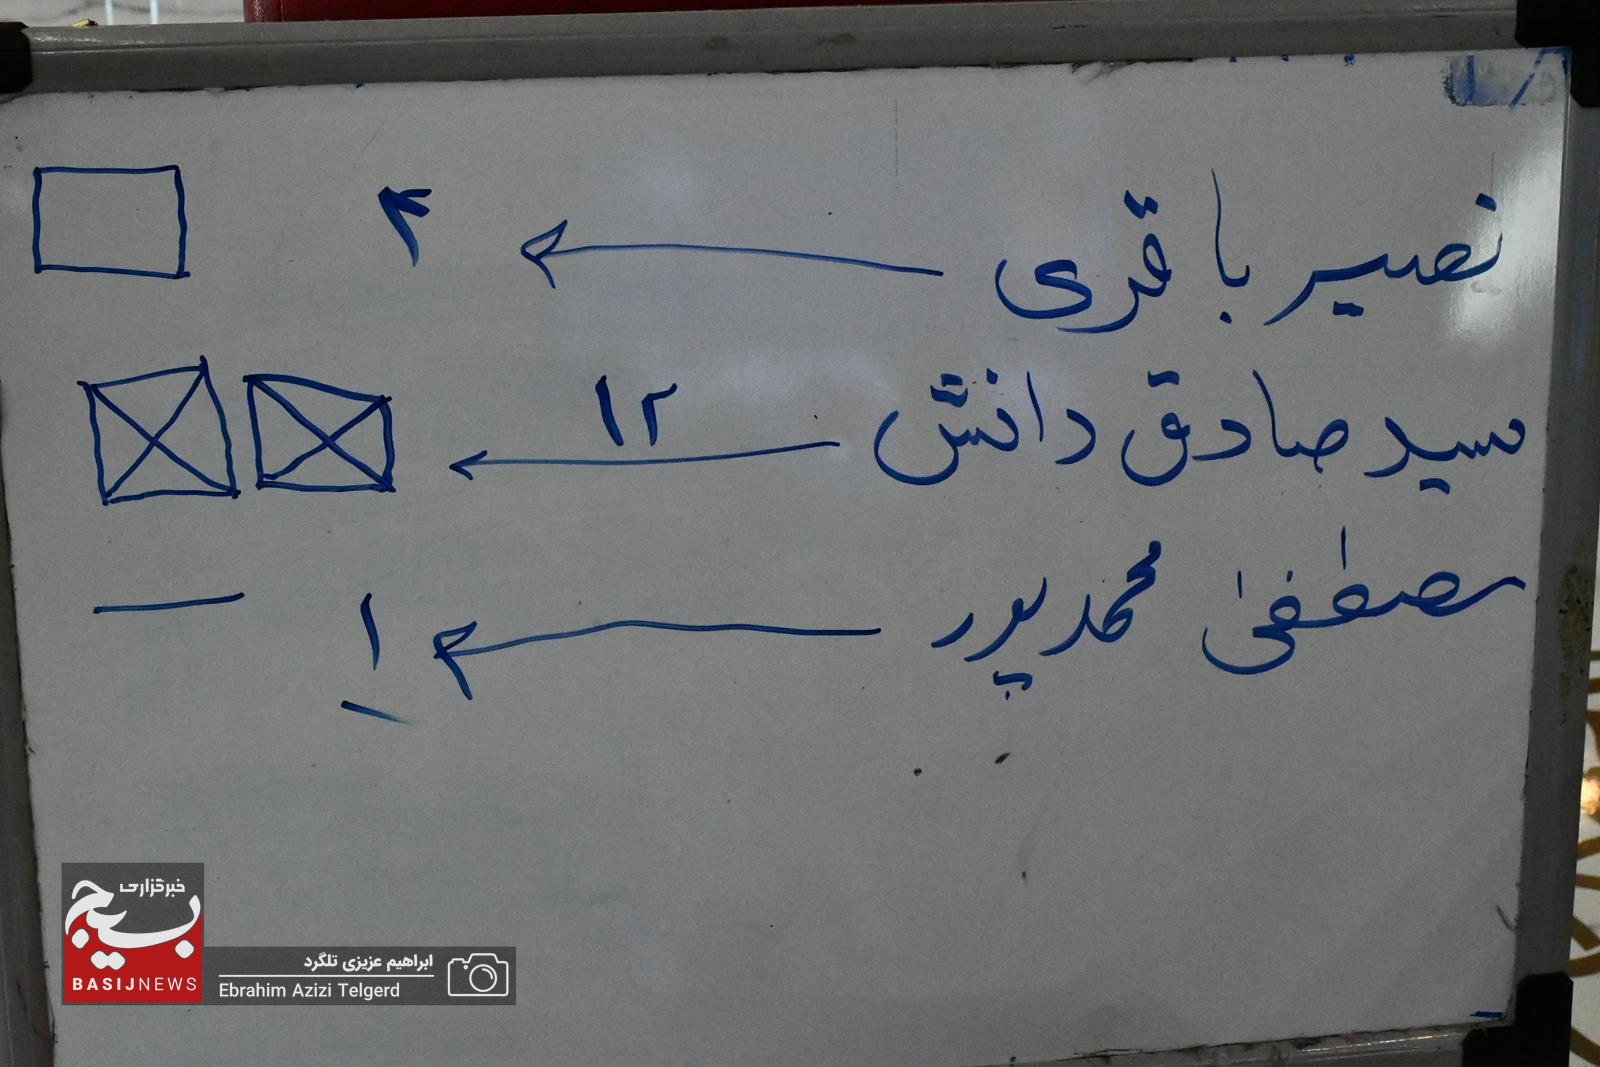 نصیر باقری ← ۴
سید صادق دانش ← ۱۲
مصطفی محمدپور ← ۱
خبرگزاری
بسیج
BASIJNEWS
ابراهیم عزیزی تلگرد
Ebrahim Azizi Telgerd